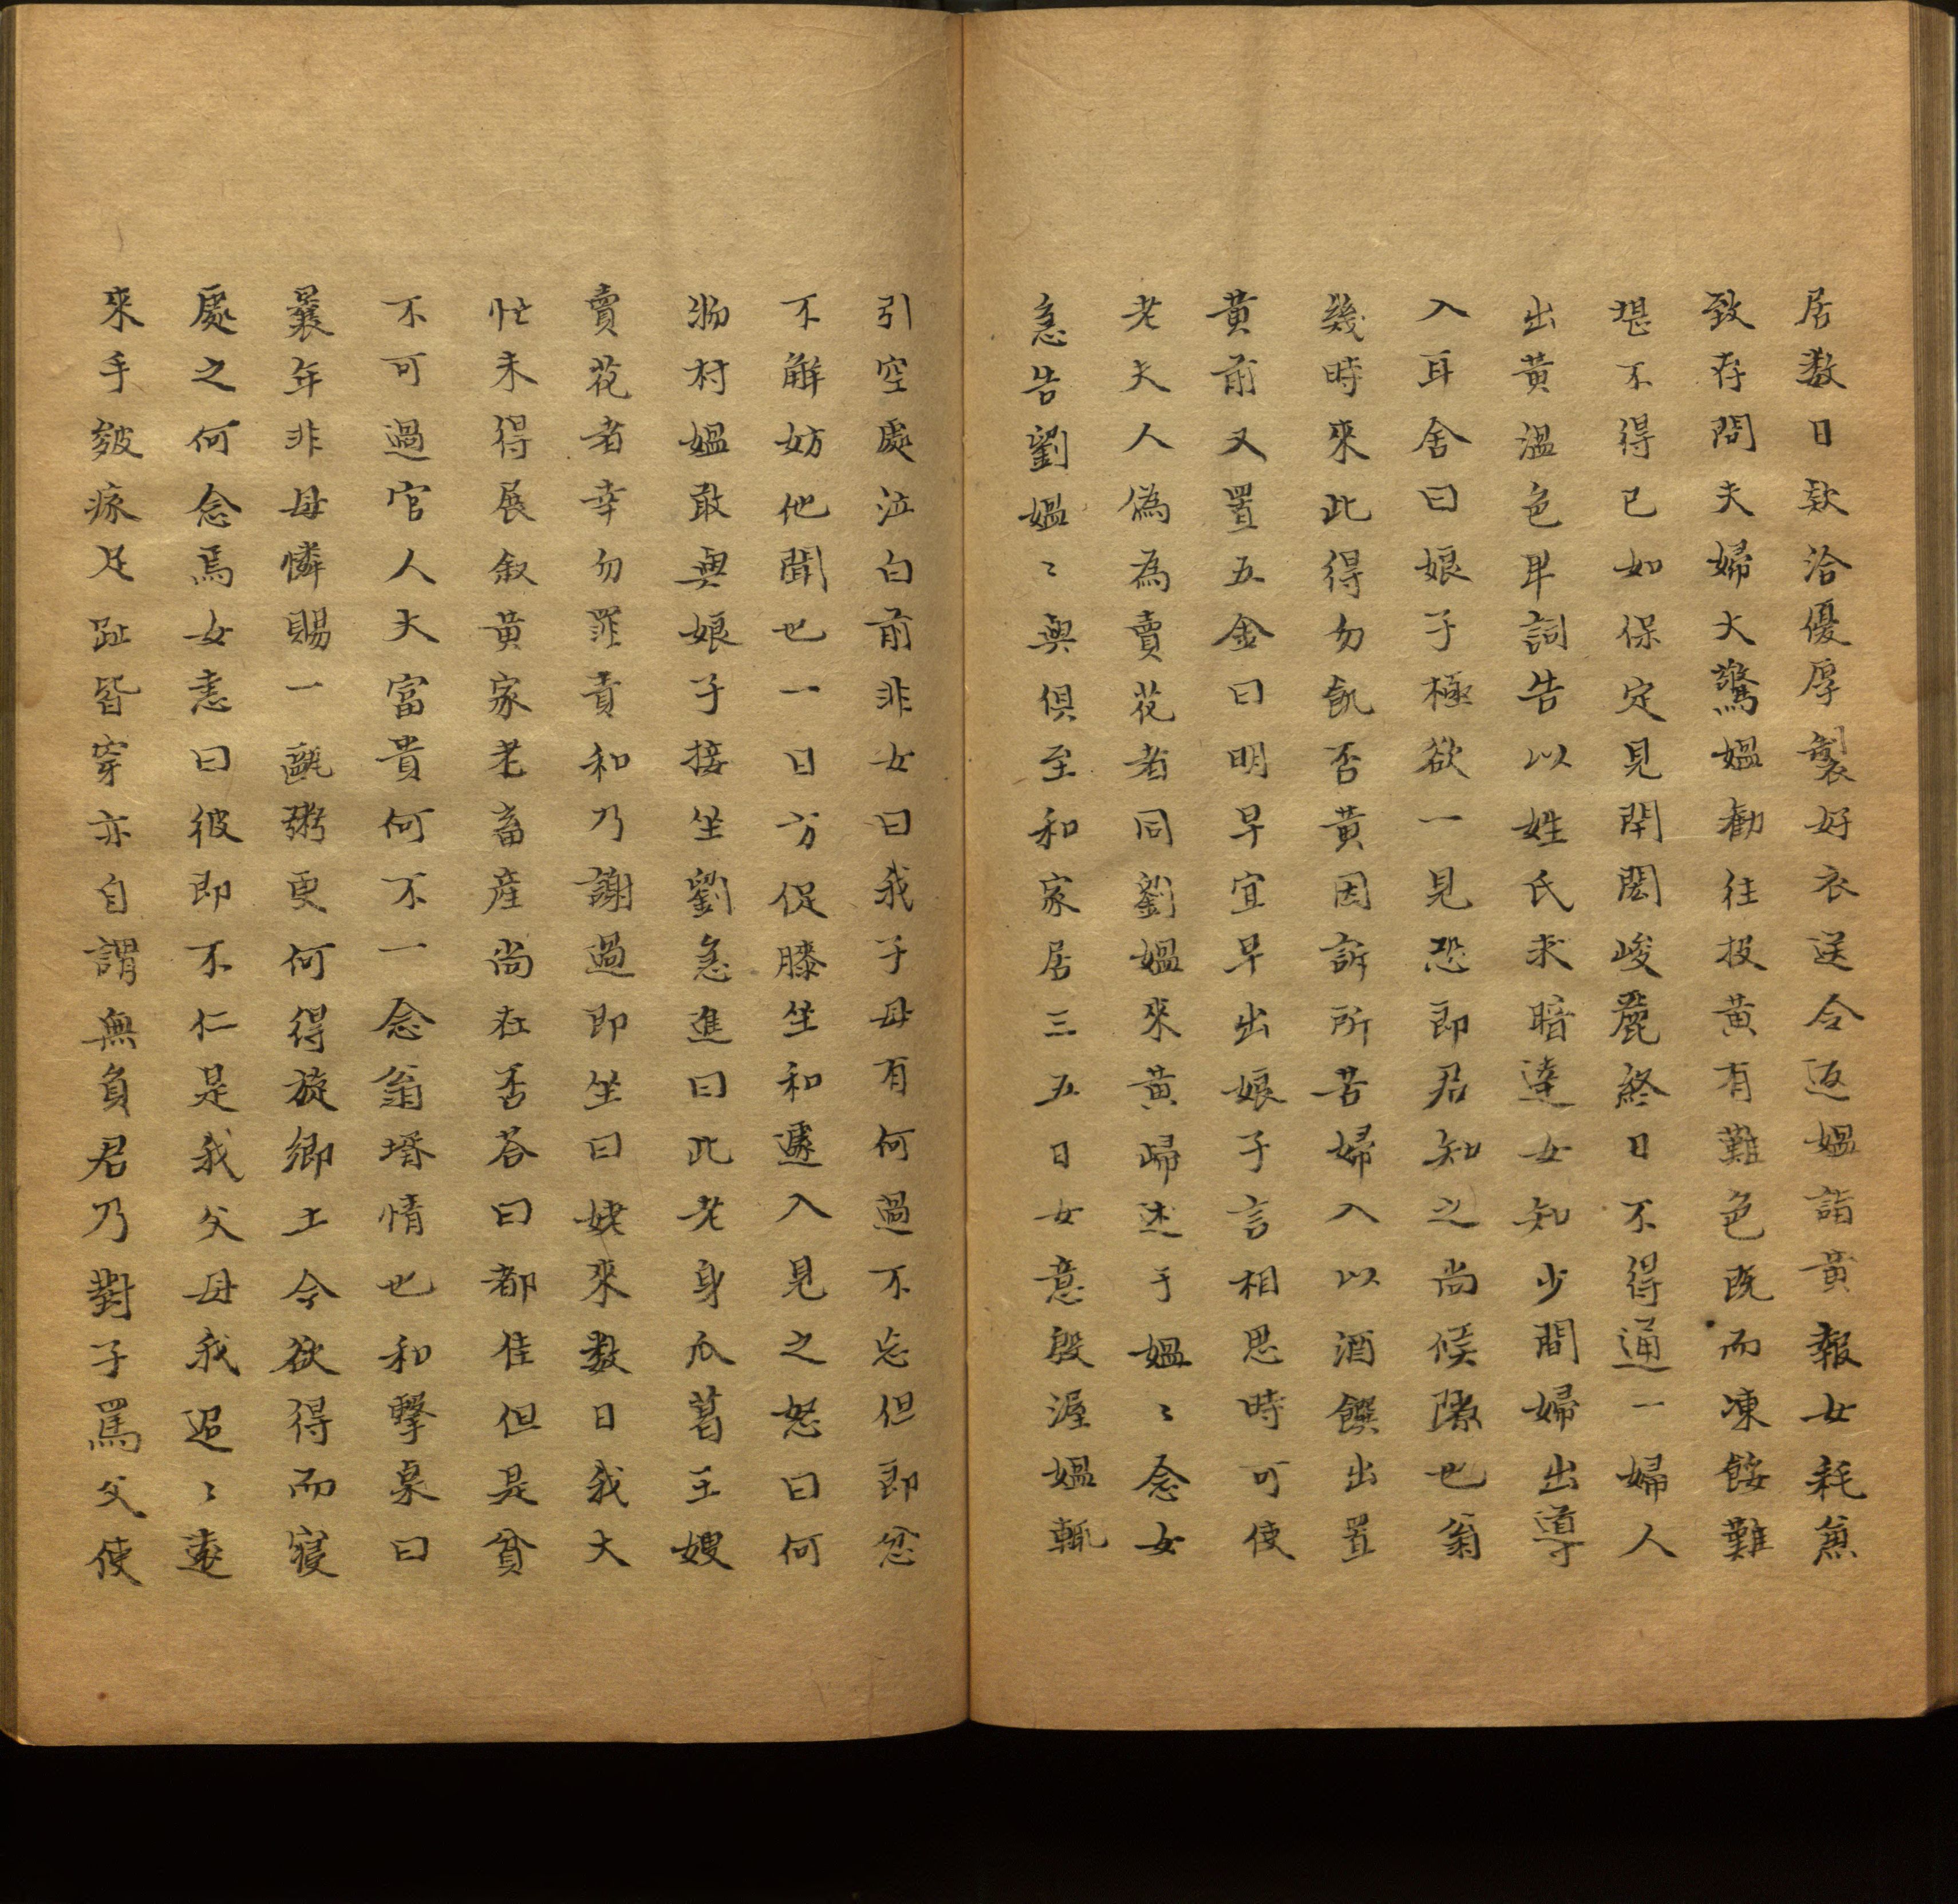 居数日款洽優厚製好衣送令返媼詣黃報女耗兼
致存問夫婦大驚媼勸往投黃有難色既而凍餒難
堪不得已如保定見閈閎峻麗終日不得通一婦人
出黃溫色卑詞告以姓氏求暗達女知少間婦出導
入耳舍曰娘子極欲一見恐郎君知之尚候隙也翁
幾時來此得勿飢否黃因訴所苦婦入以酒饌出置
黃前又置五金曰明早宜早出娘子言相思時可使
老夫人偽為賣花者同劉媼來黃歸述于媼〻念女
急告劉媼〻與俱至和家居三五日女意殷渥媼輒
引空處泣白前非女曰我子母有何過不忘但郎忿
不解妨他聞也一日方促膝坐和遽入見之怒曰何
物村媼敢與娘子接坐劉急進曰此老身瓜葛王嫂
賣花者幸勿罪責和乃謝過即坐曰姥來数日我大
忙未得展叙黃家老畜産尚在否荅曰都佳但是貧
不可過官人大富貴何不一念翁壻情也和擊桌曰
曩年非母憐賜一甌粥更何得旋鄉土今欲得而寢
處之何念焉女恚曰彼即不仁是我父母我迢〻遠
來手皴瘃足趾皆穿亦自謂無負君乃對子罵父使